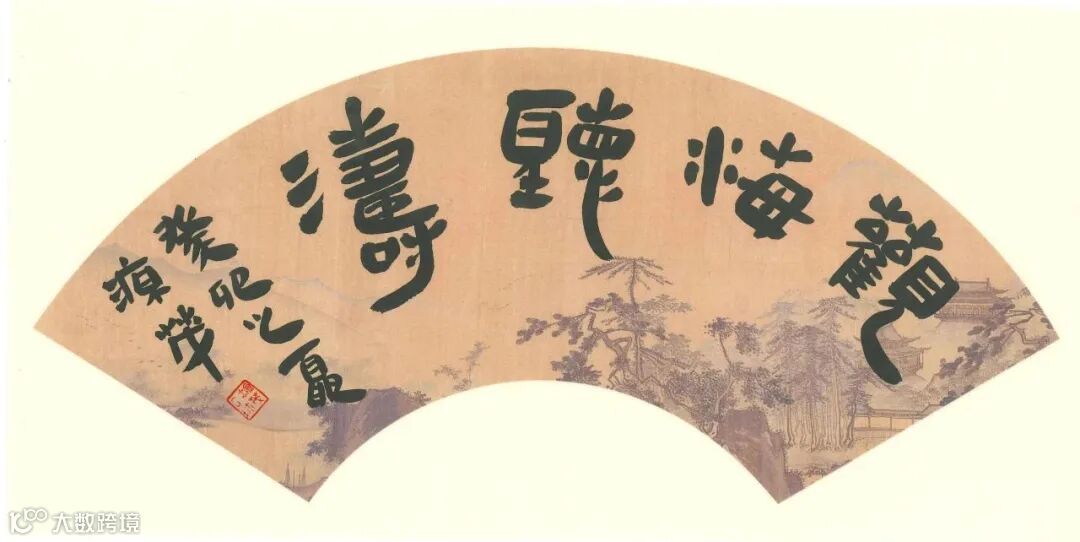 觀海聽濤
癸卯之夏
茂
大数跨境